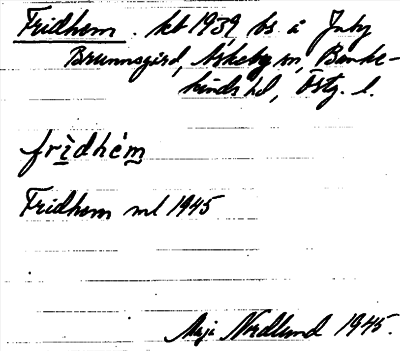 Fridhem. kt 1939, bs. å Jnby
Brunnsgård, Askeby sn, Banke-
kinds hd, Östg. l.
frìdhém
Fridhem ml 1945
Maja Nordlund 1945.